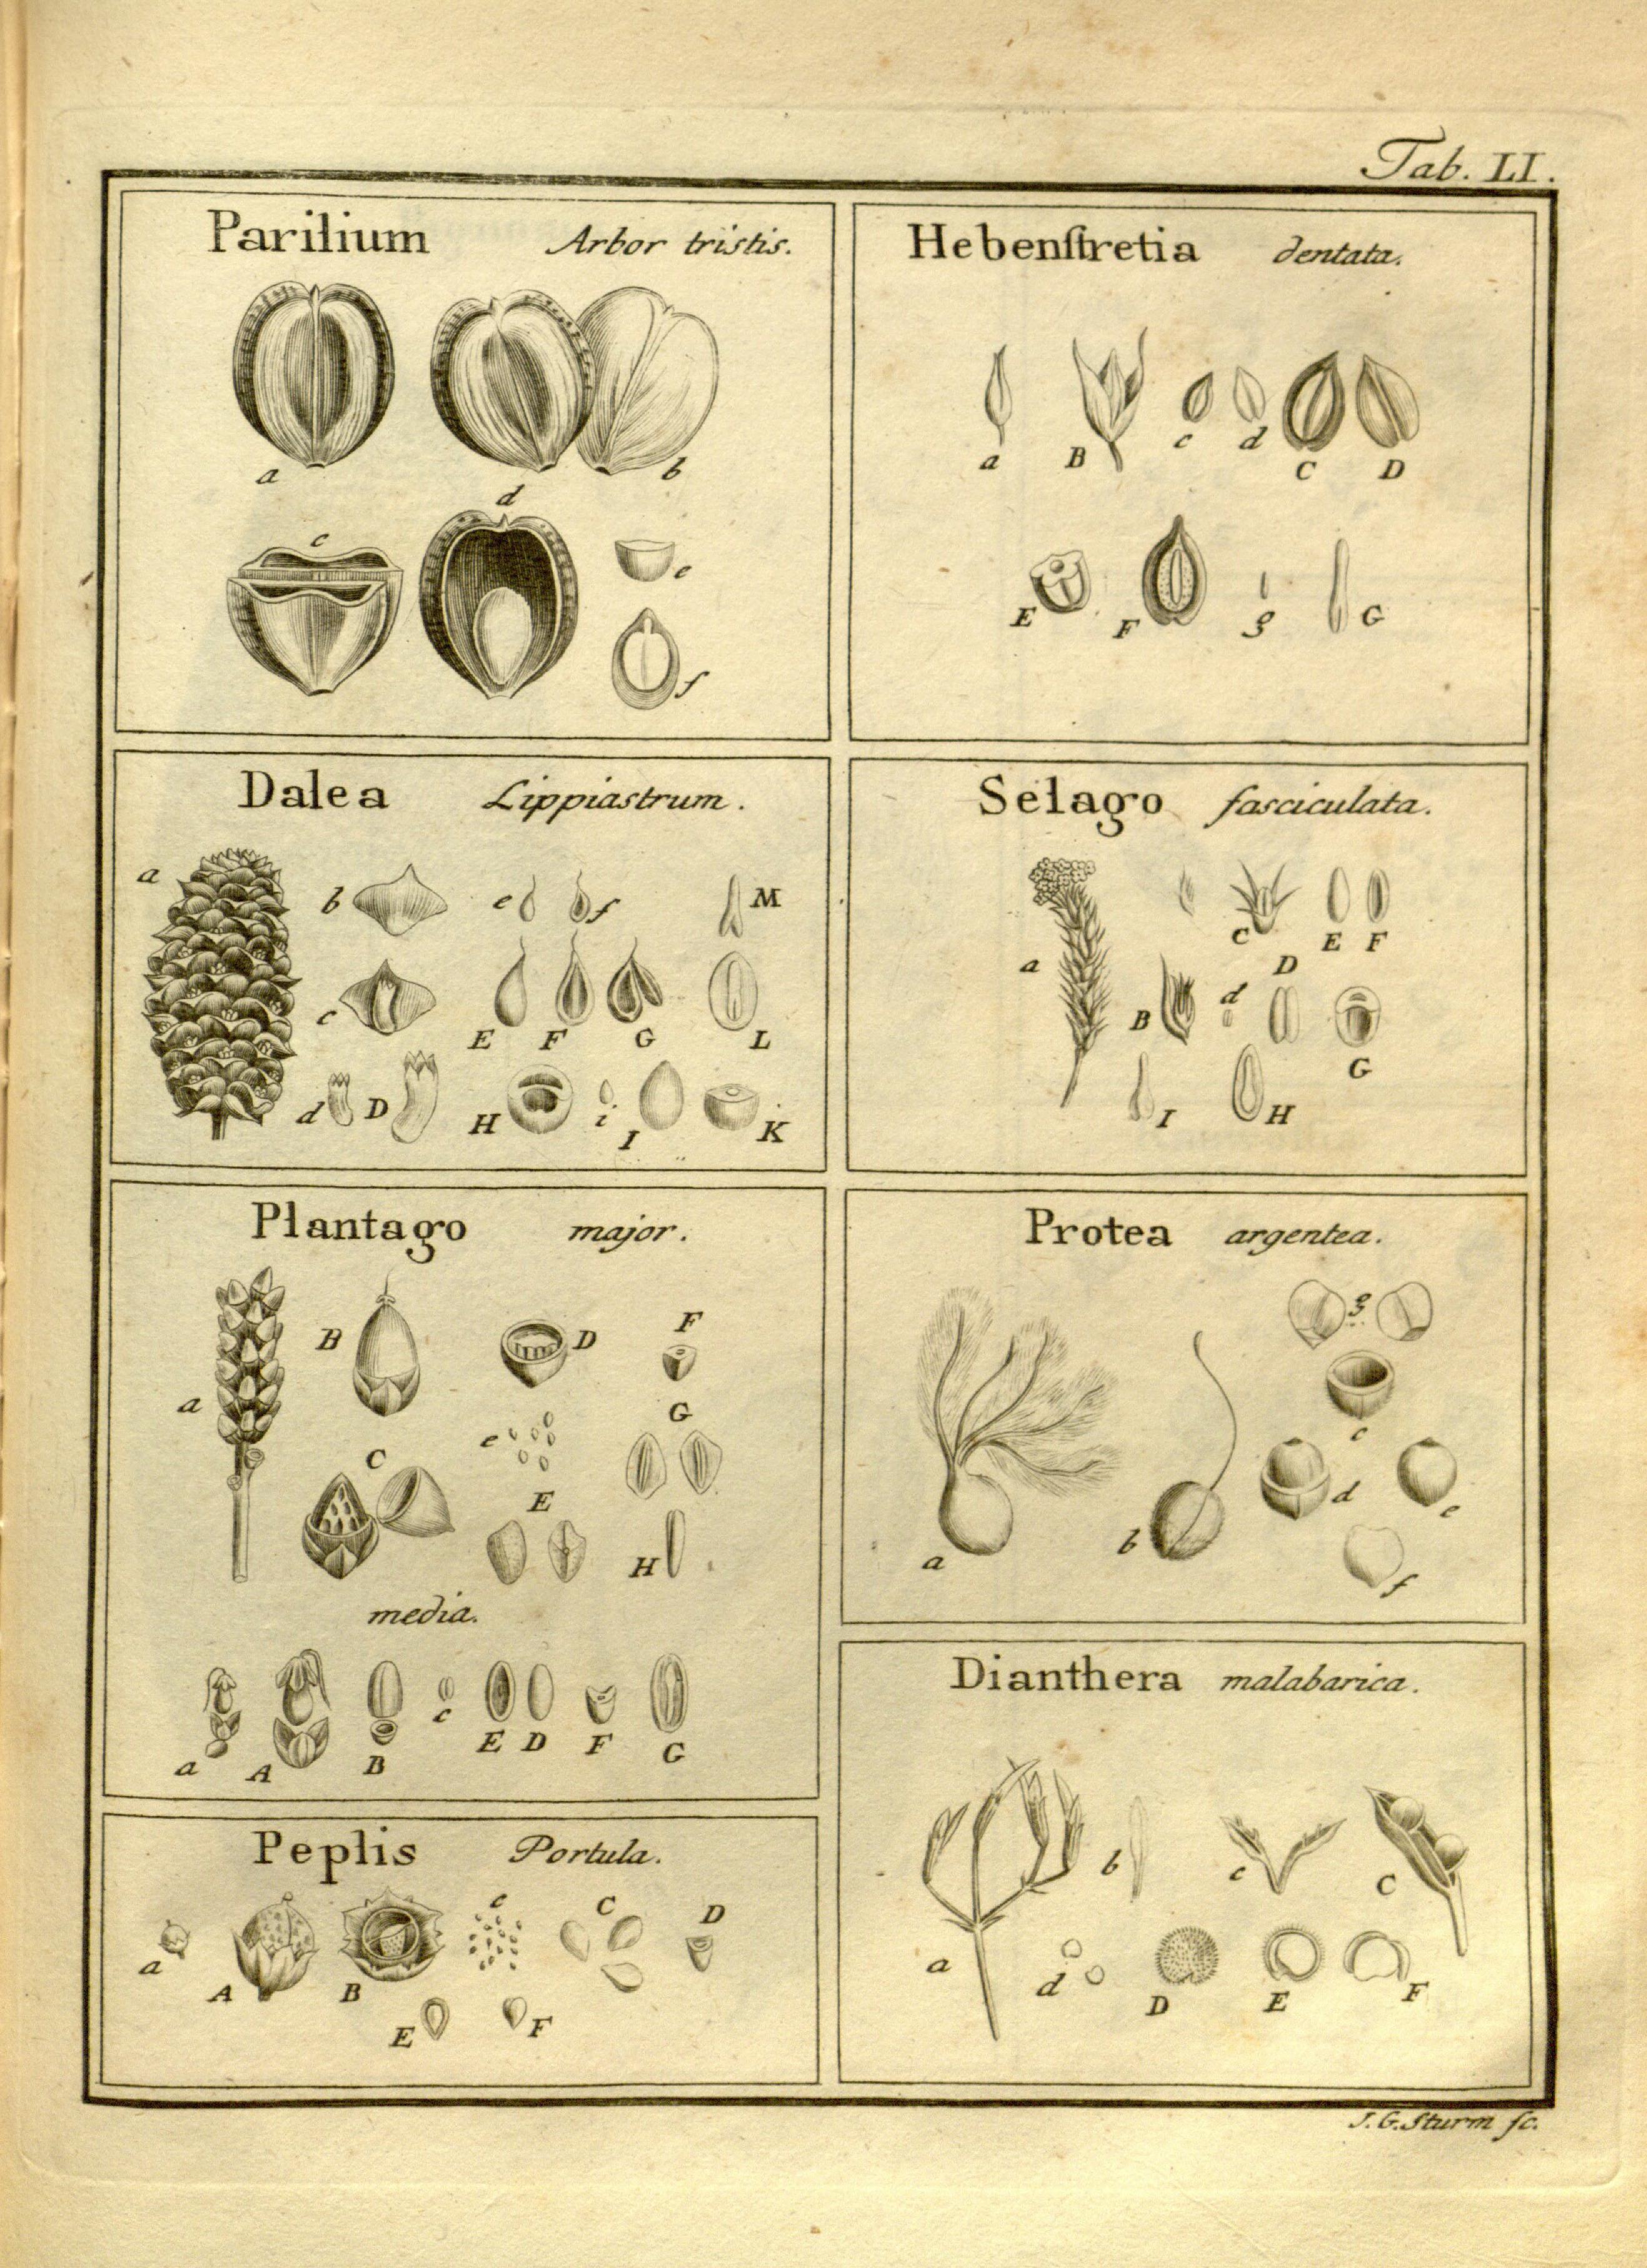 Tab. LI.
Parilium Arbor tristis.
a
d
b
c
e
f
Hebenſtretia dentata.
a
B
c
d
C
D
E
F
g
G
Dalea Lippiastrum.
a
b
e
f
M
c
E
F
G
L
d
D
H
i
I
K
Selago fasciculata.
a
C
E
F
B
d
D
G
I
H
Plantago major.
a
B
D
F
C
e
G
E
H
media.
a
A
B
c
E
D
F
G
Protea argentea.
g
a
b
c
d
e
f
Peplis Portula.
a
A
B
c
C
D
E
F
Dianthera malabarica.
a
b
c
C
d
D
E
F
J. G. Sturm ſc.